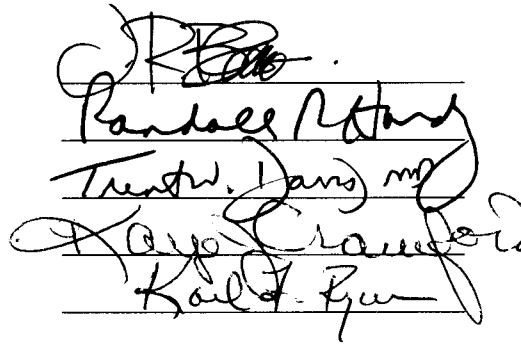 Randall R Hardy
Trent W. Davis MD
Kaye Crawford
Karl F. Ryan